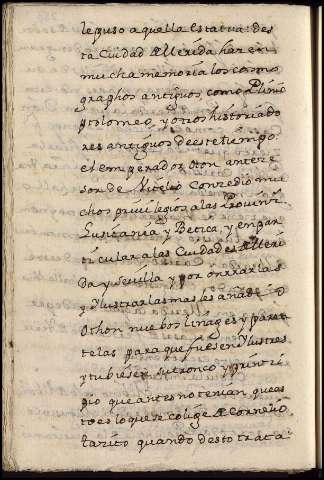 le puso aquella estatua: des
ta Ciudad de Merida hazen
mucha memoria los cosmo
graphos antiguos como Plinio
ptolomeo, y otros historiado
res antiguos de este tiempo
el emperador Oton antece
sor de Vitelio Concedio mu
chos privilegios a las Provinz.
Lusitania y Betica, y en par
ticular a las Ciudades de Meri
da y Sevilla y por onrrar las
y ylustrar las mas les añadio
Othon nuebos linages y paren
telas para que fuesen ylustres
y tubiesen su tronco y prinzi
pio que antes no tenian, que es
to es lo que se colige de Cornelio
tazito quando desto trata